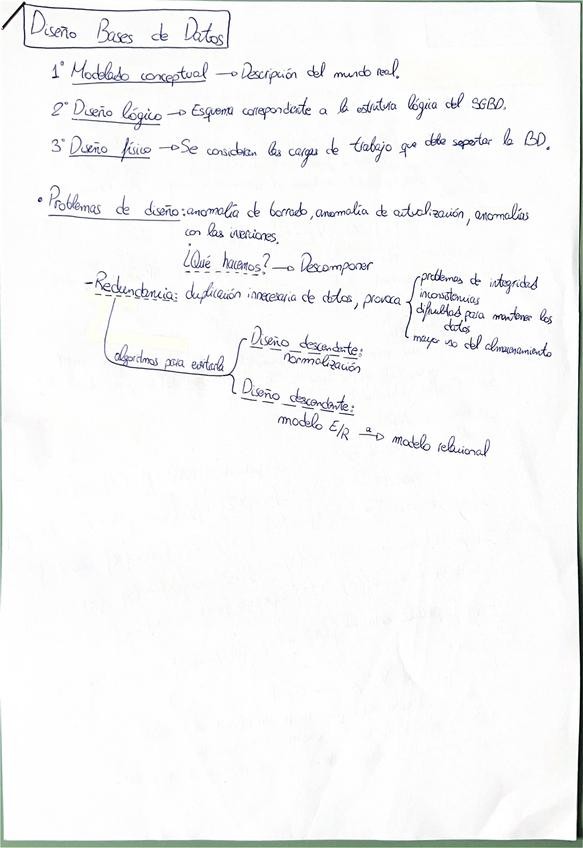 Diseño Bases de Datos
1° Modelado conceptual → Descripción del mundo real.
2° Diseño lógico → Esquema correpondiente a la estrutura lógica del SGBD.
3° Diseño físico → Se consideran las cargas de trabajo que debe soportar la BD.
• Problemas de diseño: anomalía de borrado, anomalía de actualización, anomalías
con las inserciones.
¿Qué hacemos? → Descomponer
- Redundancia: duplicación innecesaria de datos, provoca
problemas de integridad
inconsistencias
dificultad para mantener los
datos
mayor uso del almacenamiento
algoritmos para evitarla
Diseño descendente:
normalización
Diseño descendente:
modelo E/R a→ modelo relacional